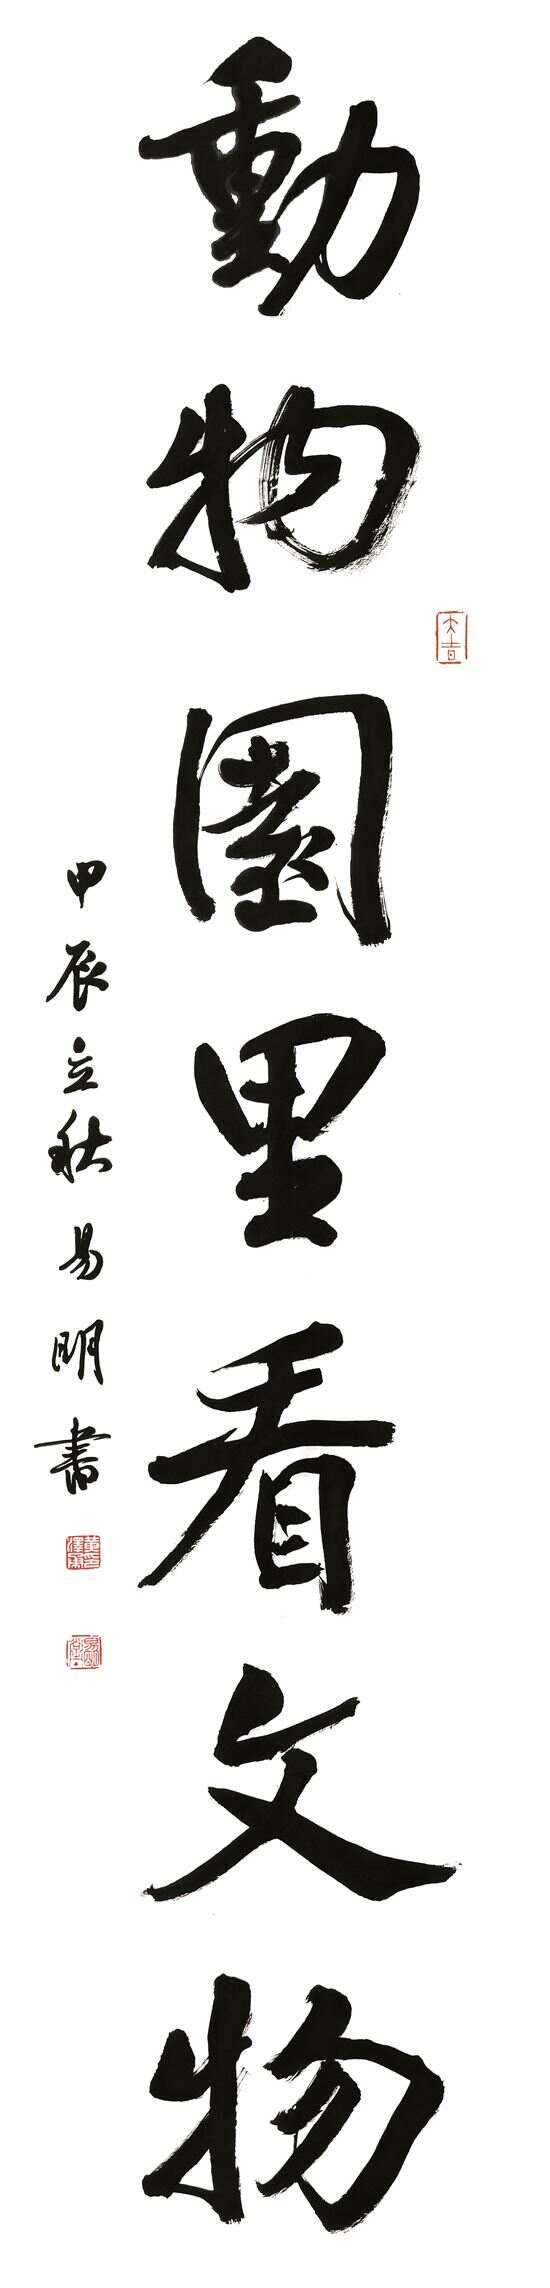 動物園里看文物
甲辰立秋易明書